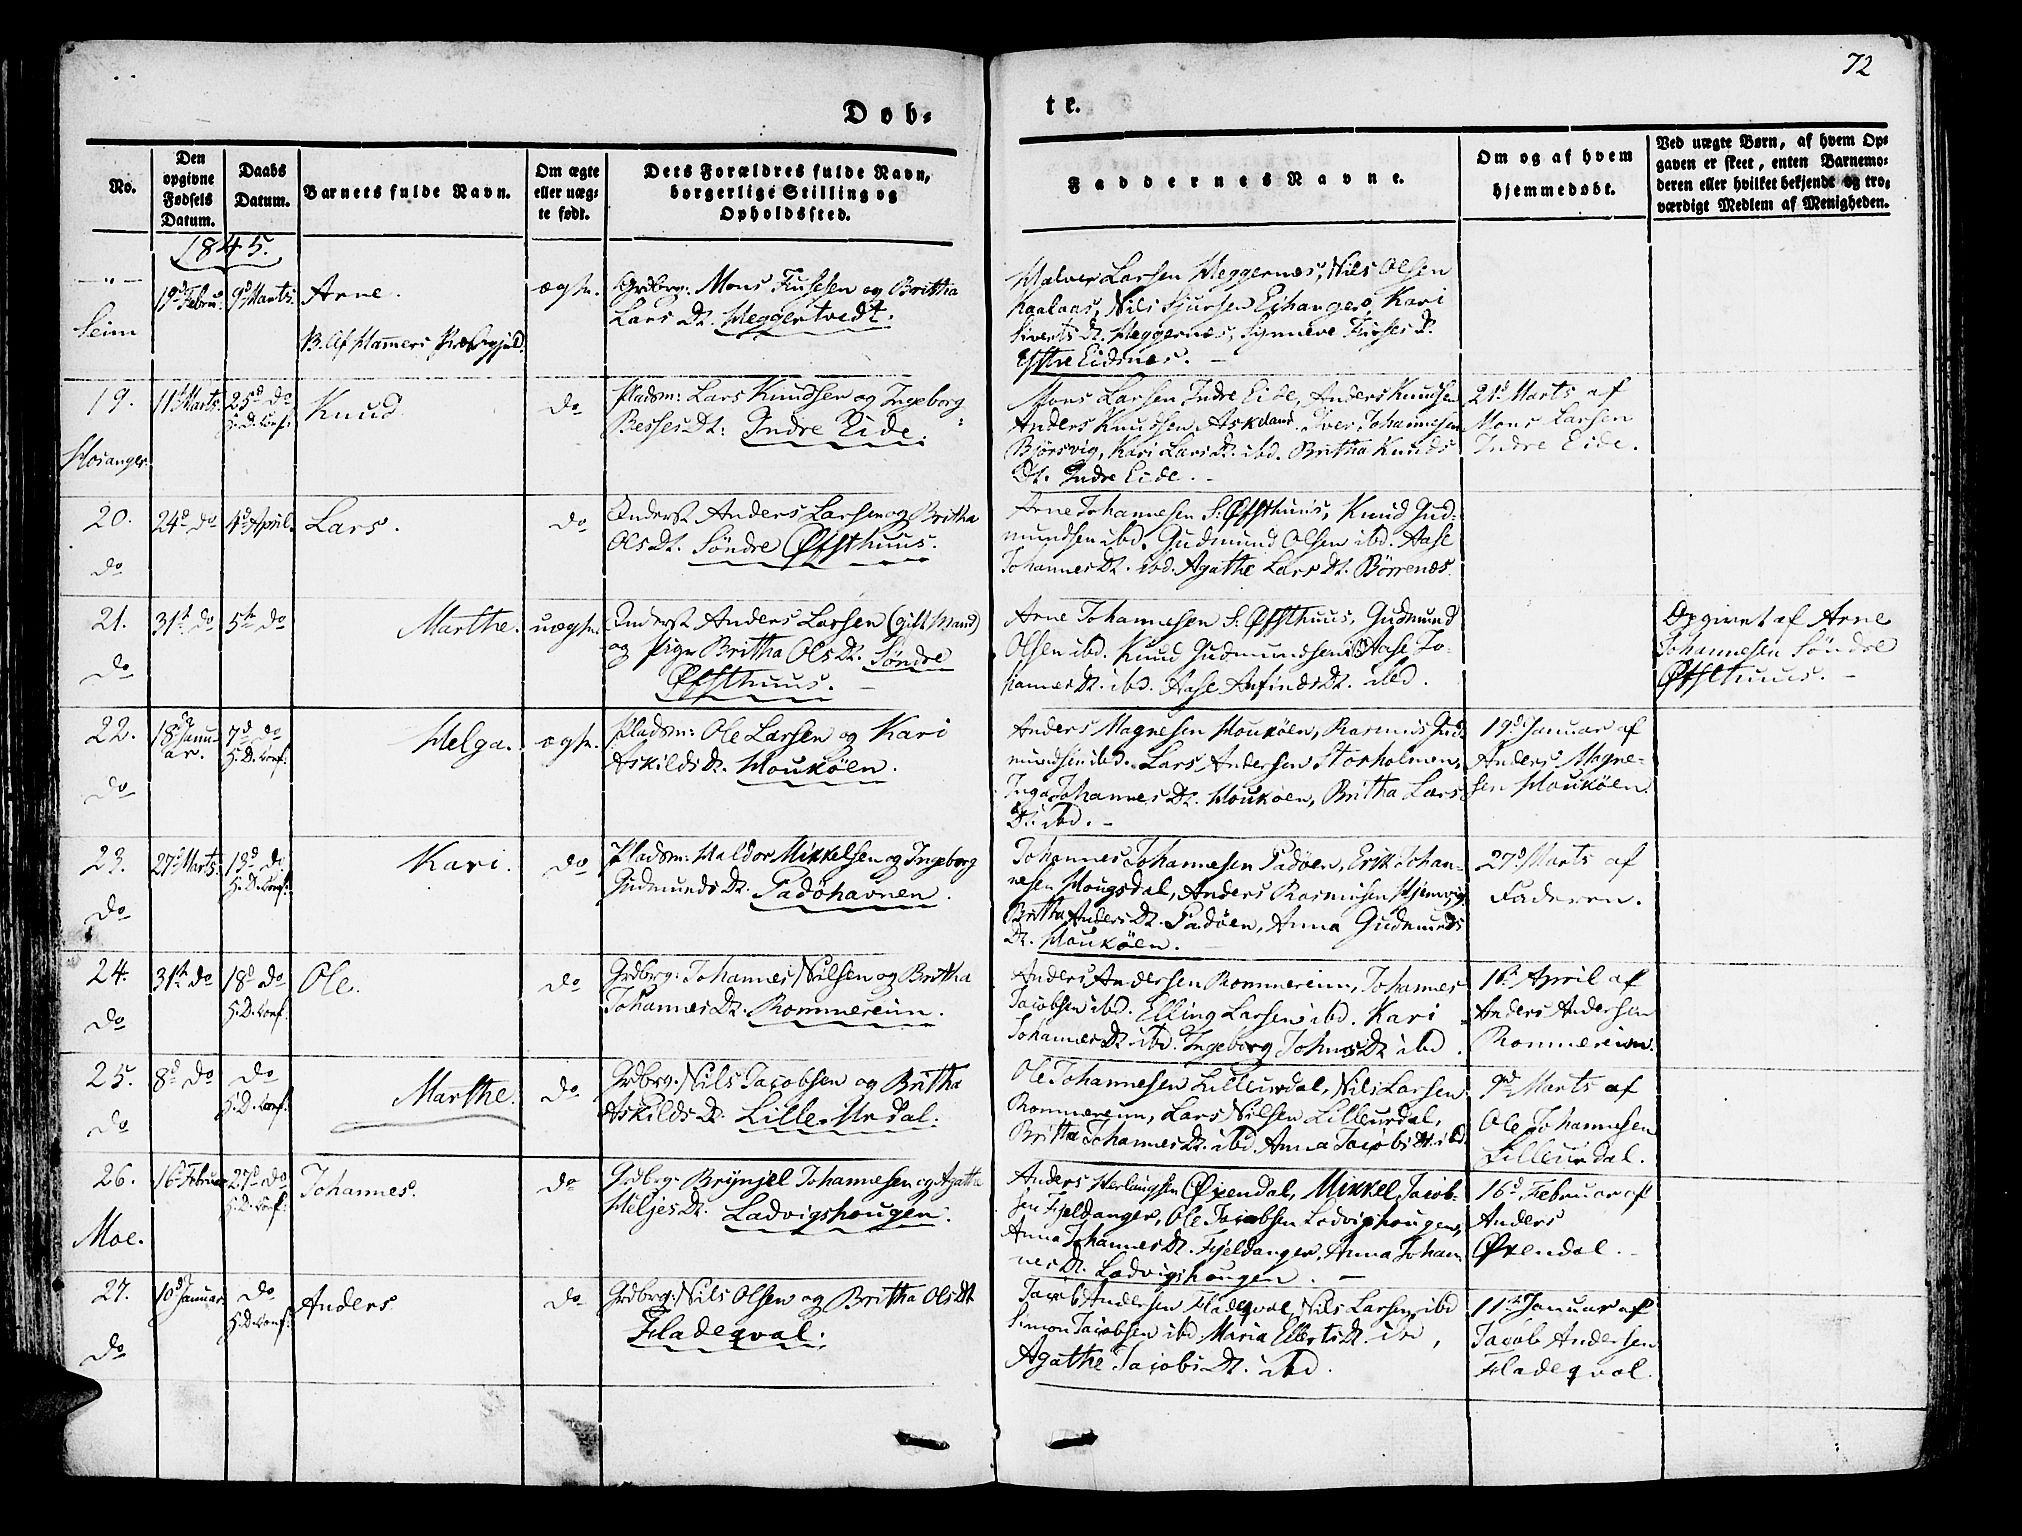 72
Døb-
te.
No.
Den opgivne Fødsels Datum.
Daabs Datum.
Barnets fulde Navn.
Om ægte eller uægte født.
Dets Forældres fulde Navn, borgerlige Stilling og Opholdssted.
Faddernes Navne.
Om og af hvem hjemmedøbt.
Ved uægte Børn, af hvem Opgaven er skeet, enten Barnemoderen eller hvilket bekjendt og troværdigt Medlem af Menigheden.
1845.
"
Seim
19d Febru:
9d Marts
Arne.
B. Af Hamers Præstegjeld.
ægte.
Grdbrg: Mons Fuglesen og Brittha
Lars Dt. Heggertvedt.
Halver Larsen Heggernæs, Nils Olsen
Kaalaas, Nils Sjursen Eihanger, Kari
Siverts Dt. Heggernæs, Synneve
Eidsnes.
19.
Hosanger
11t Marts
25d do
H. D. Conf.
Knud
do
Pladsm: Lars Knudsen og Ingeborg
Besses Dt: Indre Eide.
Mons Larsen Indre Eide, Anders Knudsen
Anders Knudsen Askeland. Iver Johannesen
Bjørsvig, Kari Lars Dt. ibd. Britha Knuds
Dt. Indre Eide.
21d Marts af
Mons Larsen
Indre Eide.
20.
do
24d do
4d April
Lars.
do
Inderst Anders Larsen og Britha
Ols Dt. Søndre Øfsthuus.
Arne Johannesen S. Øfsthuus, Knud Gud-
mundsen ibd. Gudmund Olsen ibd. Aase
Johannes Dt. ibd. Agathe Lars Dt. Børrenæs.
21.
do
31t do
5te do
Marthe.
uægte.
Inderst Anders Larsen (gift Mand)
og Pige Britha Ols Dt. Søndre
Øfsthuus.
Arne Johannesen S. Øfsthuus, Gudmund
Olsen ibd. Knud Gudmundsen ibd. Aase Jo-
hannes Dt. ibd. Aase Anfinds Dt. ibd.
Opgivet af Arne
Johannesen Søndre
Øfsthuus.
22.
do
18d Janu-
ar.
7d do
H. D. Conf.
Helga.
ægte.
Pladsm: Ole Larsen og Kari
Askilds Dt. Houkøen.
Anders Magnesen Houkøen, Rasmus Gud-
mundsen ibd. Lars Andersen Storholmen,
Inga Johannes Dt. Houkøen, Britha Lars
Dt. ibd.
19d Januar af
Anders Magne-
sen Houkøen.
23.
do
27d Marts
13d do
H. D. Conf.
Kari.
do
Pladsm: Haldor Mikkelsen og Ingeborg
Gudmunds Dt. Padøhavnen.
Johannes Johannesen Padøen, Erik Johan-
nesen Hougsdal, Anders Rasmussen Hjemvig
Britha Anders Dt. Padøen, Anna Gudmunds
Dt. Houkøen.
27d Marts af
Faderen.
24.
do
31te do
18d do
H. D. Conf.
Ole.
do
Grdbrg: Johannes Nilsen og Britha
Johannes Dt. Rommereim.
Anders Andersen Rommereim, Johannes
Jacobsen ibd. Elling Larsen ibd. Kari
Johannes Dt. ibd. Ingeborg Johns Dt. ibd.
1te April af
Anders Andersen
Rommereim.
25.
do
8d do
do
H. D. Conf.
Marthe.
do
Grdbrg: Nils Jacobsen og Britha
Askilds Dt. Lille Urdal.
Ole Johannesen Lilleurdal, Nils Larsen
Rommereim, Lars Nilsen Lilleurdal,
Britha Johannes Dt. ibd. Anna Jacobs Dt. ibd.
9d Marts af
Ole Johannesen
Lilleurdal.
26.
Moe.
16d Februar
27d do
H. D. Conf.
Johannes.
do
Grdbrg: Brynjel Johannesen og Agatha
Heljes Dt. Ladvigshougen.
Anders Herlaugsen Øxendal, Mikkel Jacob-
sen Fjeldanger, Ole Jacobsen Ladvigshougen,
Anna Johannes Dt. Fjeldanger, Anna Johan-
nes Dt. Ladvigshougen.
16d Februar af
Anders
Øxendal.
27.
do
10d Januar
do
H. D. Conf.
Anders.
do
Grdbrg: Nils Olsen og Britha Ols Dt.
Fladeqval.
Jacob Andersen Fladeqval, Nils Larsen ibd
Simon Jacobsen ibd Maria Ellerts Dt. ibd,
Agathe Jacobs Dt. ibd.
11te Januar af
Jacob Andersen
Fladeqval.